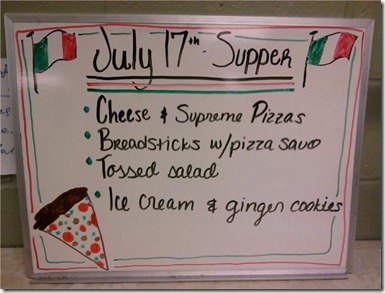 July 17th Supper
• Cheese & Supreme Pizzas
• Breadsticks w/pizza sauce
• Tossed salad
• Ice cream & ginger cookies